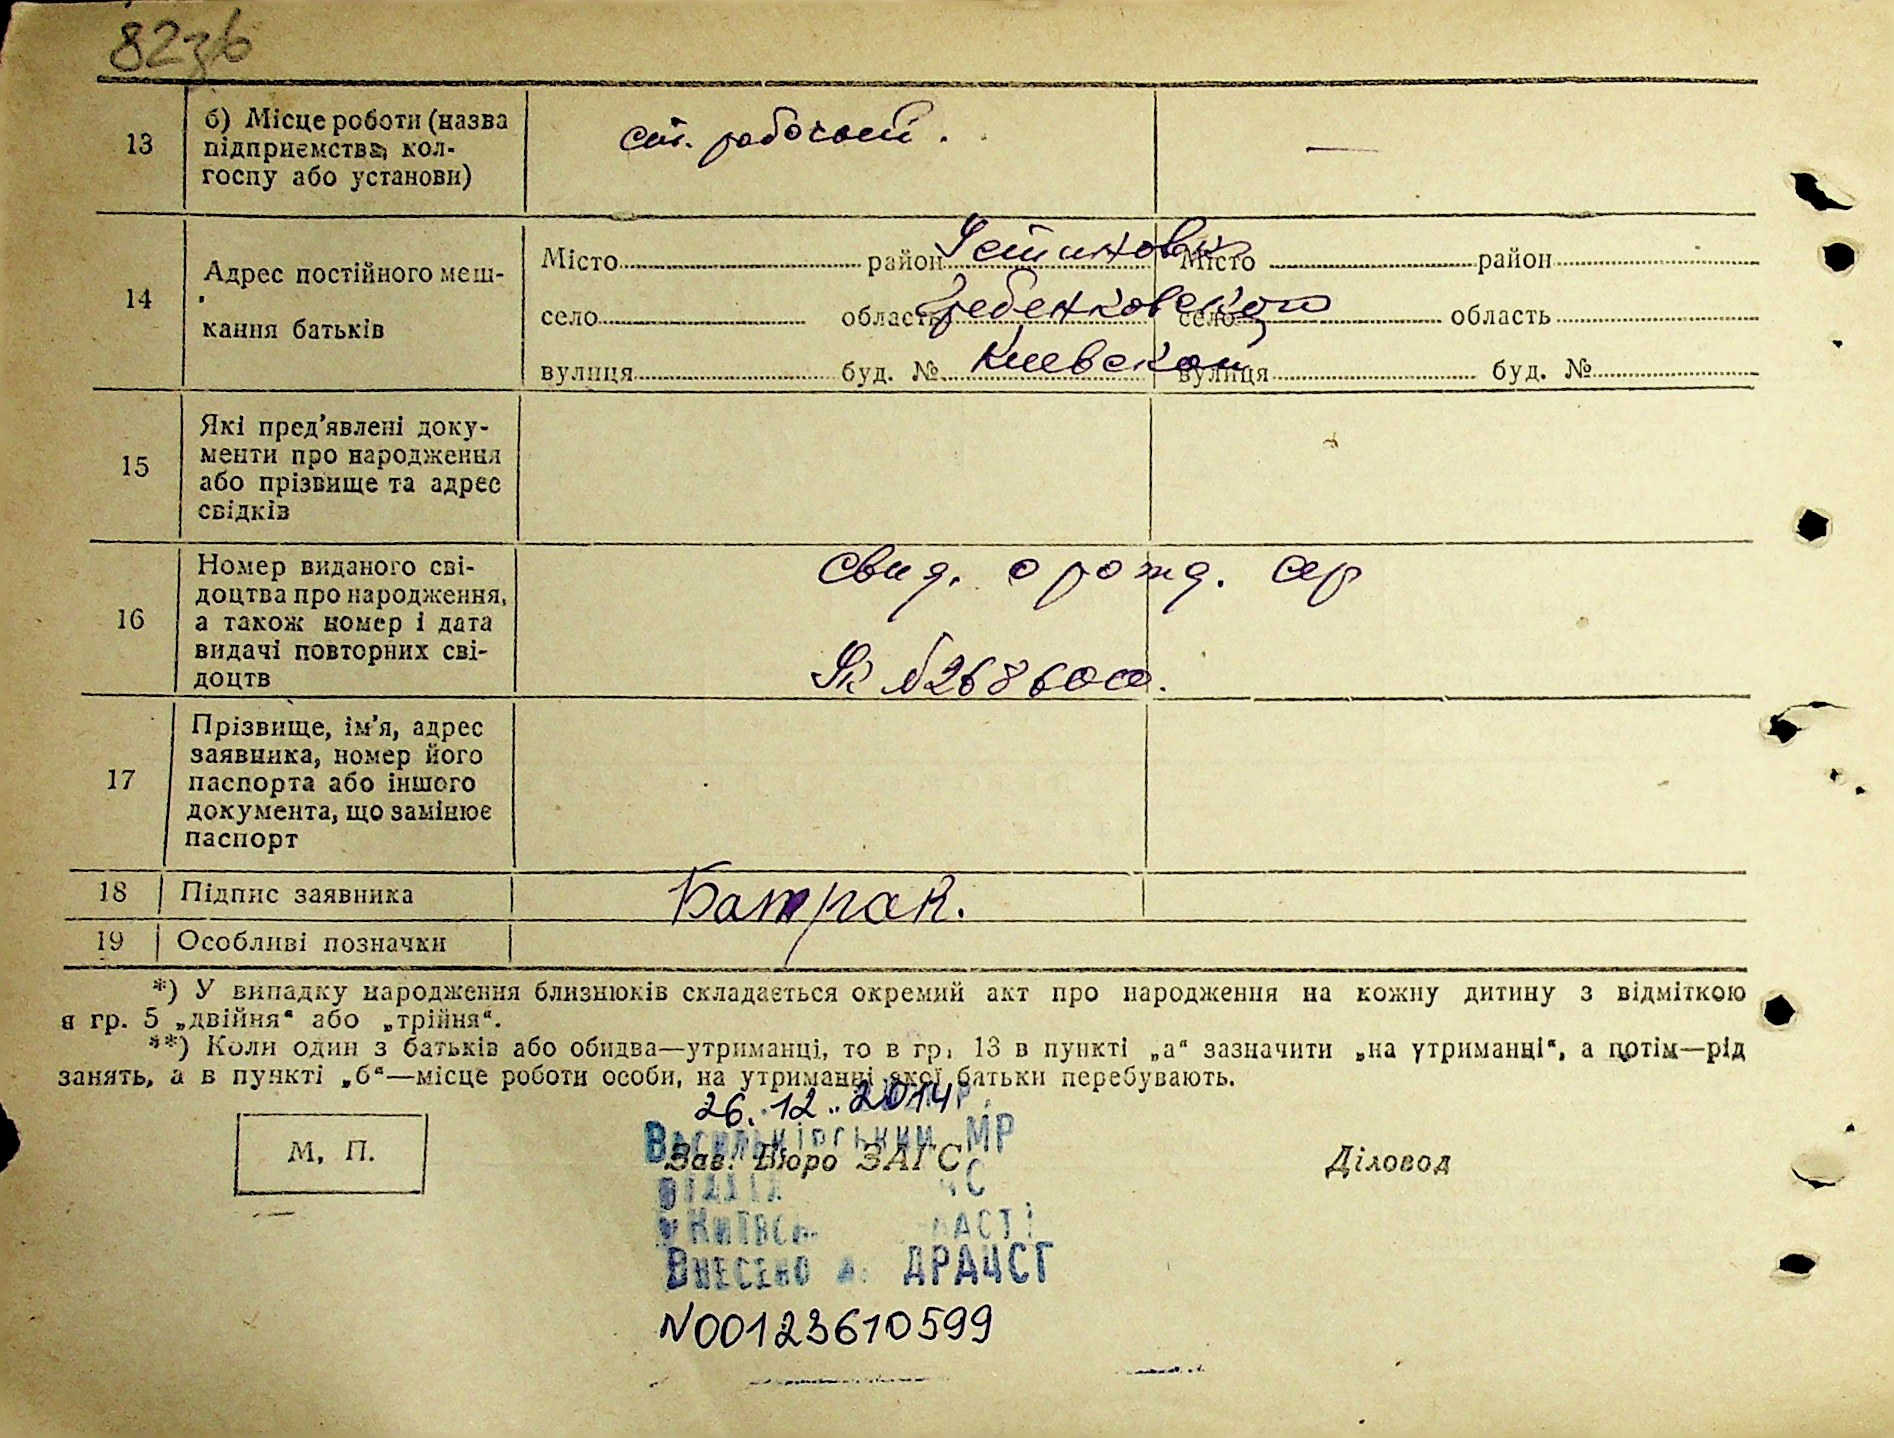 82зв
13
б) Місце роботи (назва
підприємства, кол-
госпу або установи)
ст. рабочий.
—
14
Адрес постійного меш-
кання батьків
Місто район Устиновк Місто район
село область Гребенковского село область
вулиця буд. № Киевской вулиця буд. №
15
Які пред'явлені доку-
менти про народження
або прізвище та адрес
свідків
16
Номер виданого сві-
доцтва про народження,
а також номер і дата
видачі повторних сві-
доцтв
свид. о рожд. сер
№268600.
17
Прізвище, ім'я, адрес
заявника, номер його
паспорта або іншого
документа, що замінює
паспорт
18
Підпис заявника
Батрак.
19
Особливі позначки
*) У випадку народження близнюків складається окремий акт про народження на кожну дитину з відміткою
в гр. 5 „двійня“ або „трійня“.
**) Коли один з батьків або обидва—утриманці, то в гр. 13 в пункті „а“ зазначити „на утриманні“, а потім—рід
занять, а в пункті „б“—місце роботи особи, на утриманні якої батьки перебувають.
26.12.2014
Васильківський МР
М. П.
Зав. Бюро ЗАГС
Діловод
Внесено ДРАЦСГ
N00123610599